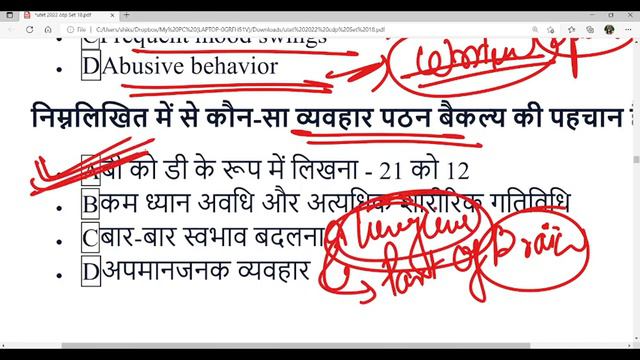 utet 2022 cdp Set 18.pdf
File | C:/Users/shiks/Dropbox/My%20PC%20(LAPTOP-0GRFH51V)/Downloads/utet%202022%20cdp%20Set%2018.pdf
C Frequent mood swings
D Abusive behavior
निम्नलिखित में से कौन-सा व्यवहार पठन बैकल्य की पहचान
A बी को डी के रूप में लिखना - 21 को 12
B कम ध्यान अवधि और अत्यधिक शारीरिक गतिविधि
C बार-बार स्वभाव बदलना
D अपमानजनक व्यवहार
Part of Brain